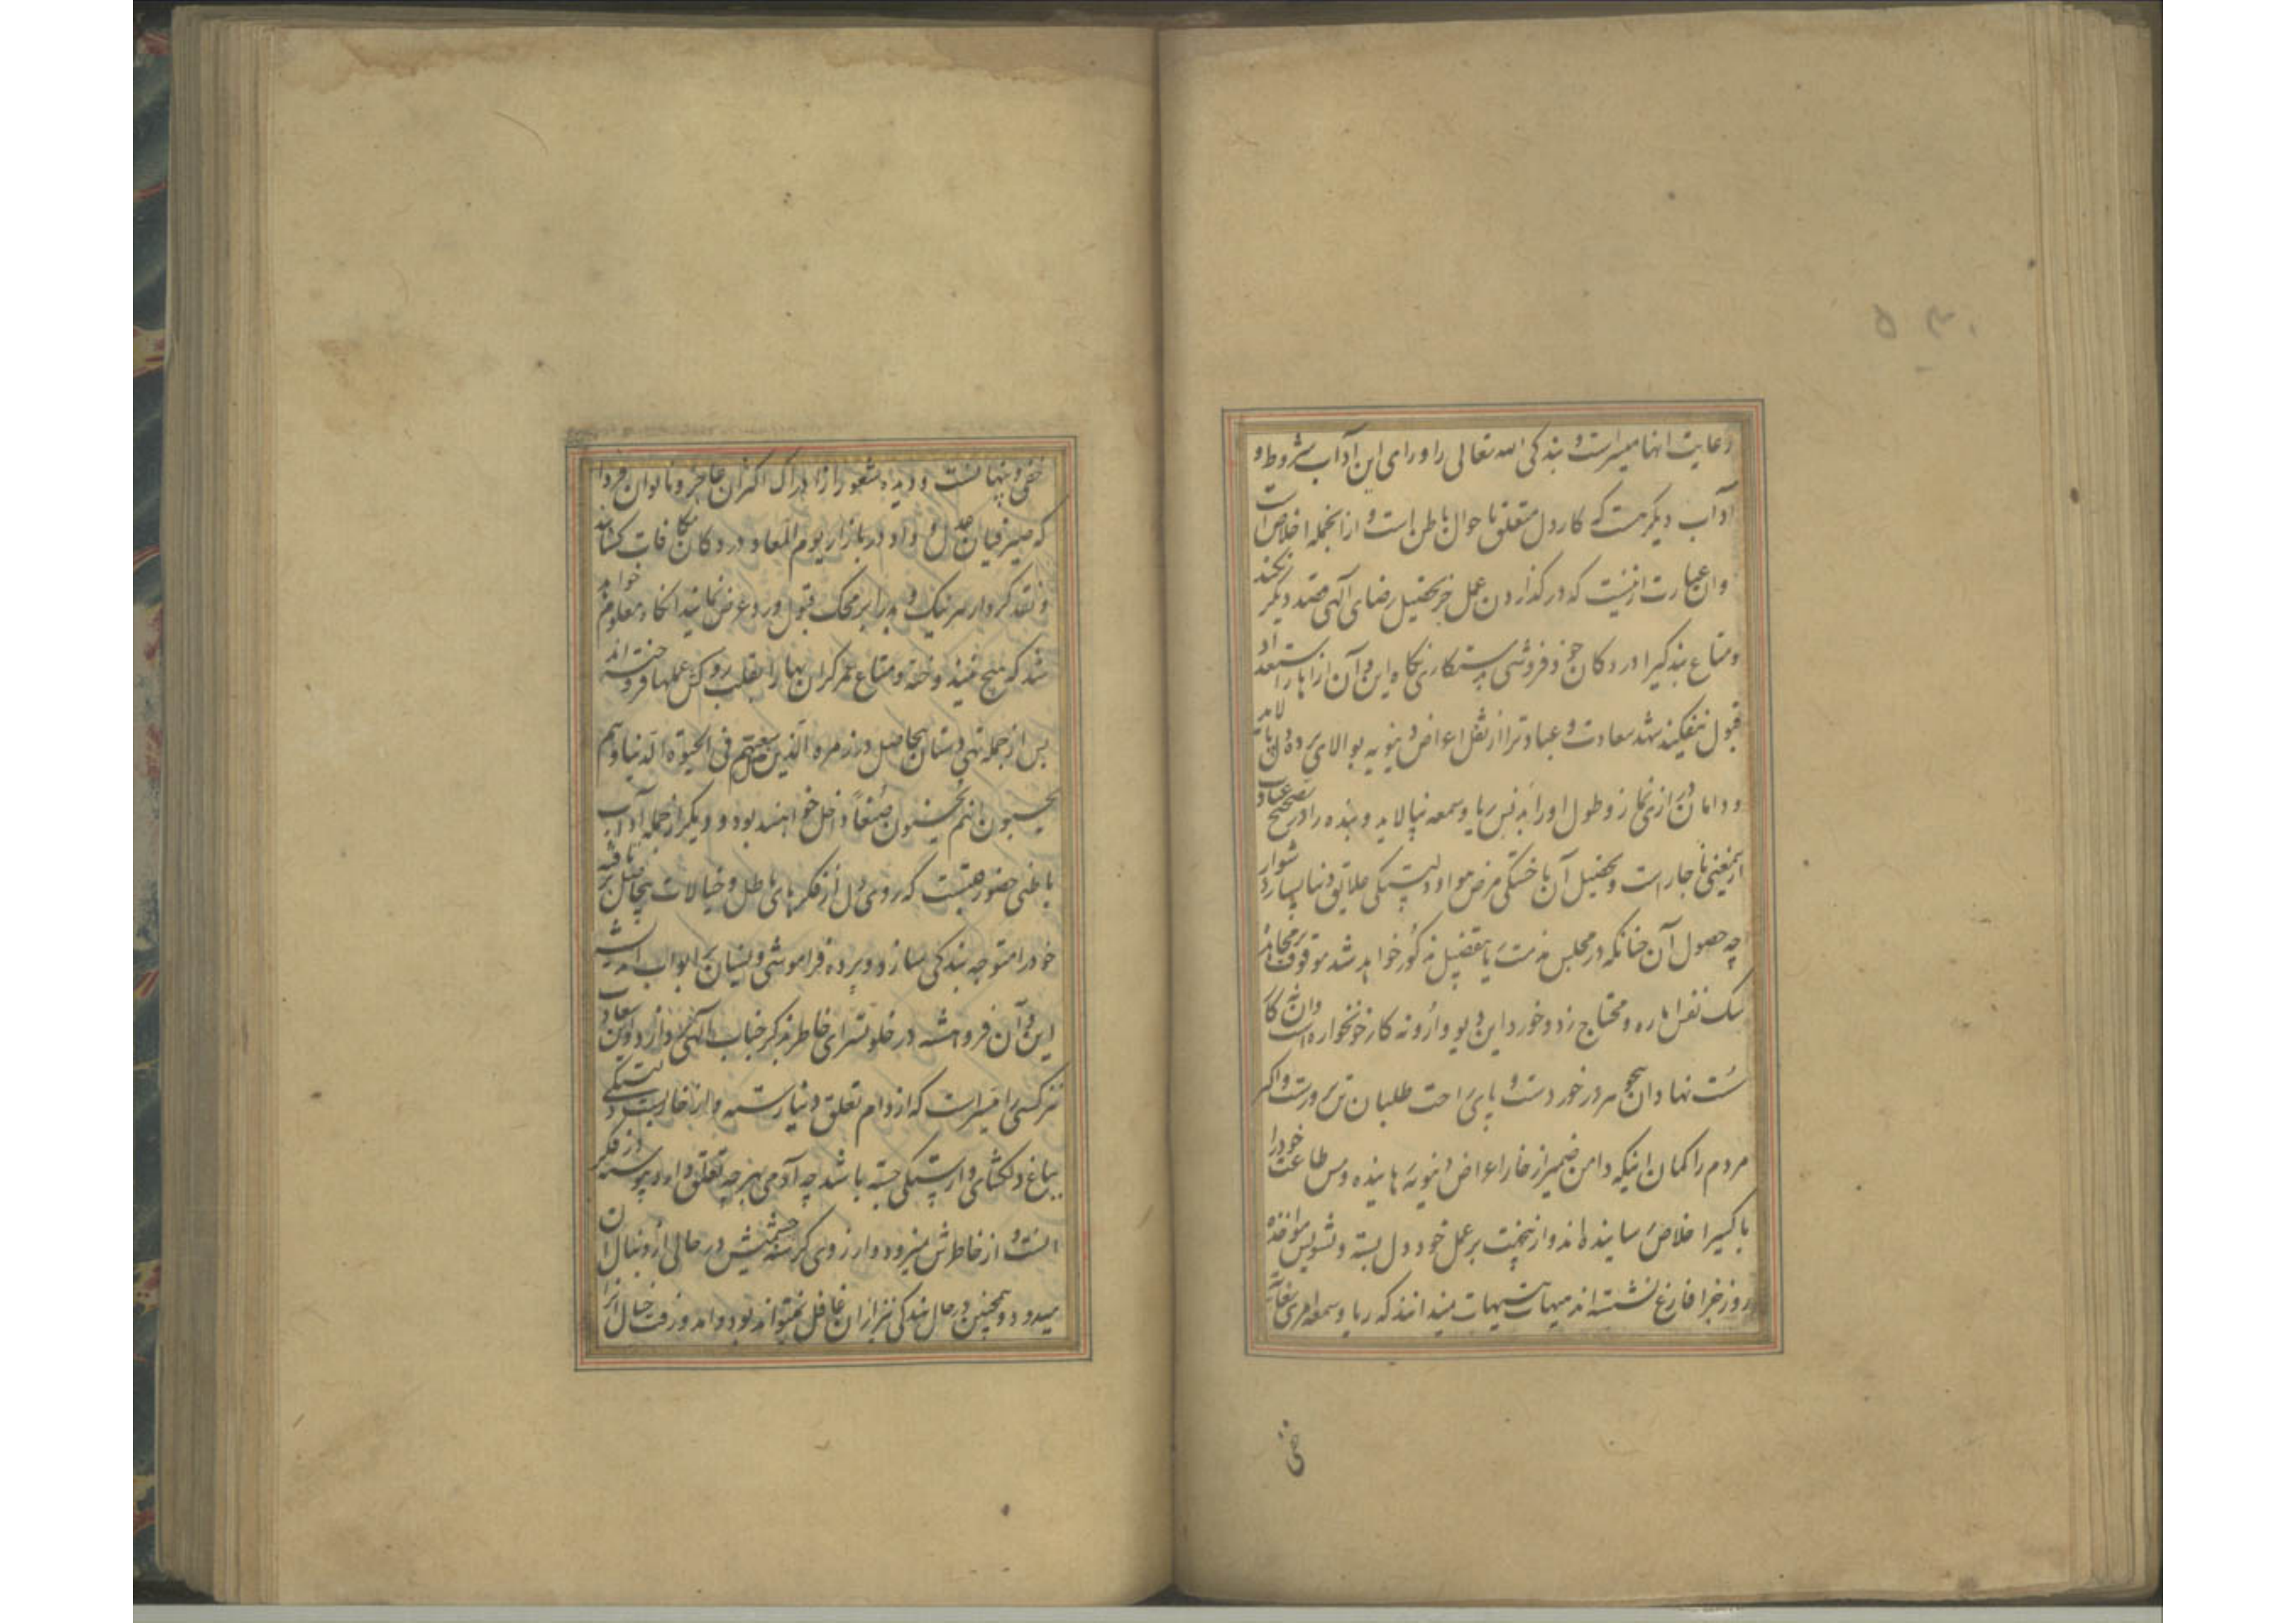 رعایت انها میسر است و بندگی الله تعالی را ورای این آداب و شروط و
آداب دیگر هست که کار دل و متعلق باحوال باطن است و ازانجمله اخلاص است
وان عبارت ازینست که در گذاردن عمل جز تحصیل رضای آلهی قصد دیگر نکند
و متاع بندگیرا در دکان خود فروشی پیشکاری نگاه این و آن از بها
قبول نیفکند شهد سعادت و عبادترا از ثفل اعراض دنیویه بپالای
و دامان درازی نماز و طول اورا بدنس ریا و سمعه نیالاید و بنده را در تصحیح عبادت
ازینمعنی ناچار است و تحصیل آن با خستگی مرض هوا و دلبستگی علایق دنیا بسیار دشوار
چه حصول آن چنانکه در مجلس نیت بتفصیل مذکور خواهد شد موقوف بر مجاهده
سک نفس اماره و محتاج زد و خورد این دیو وارونه کار خونخواره است وان نه کار
سست نهادان همچو ما و درخور دست و پای راحت طلبان تن پرورست و اکثر
مردم را گمان اینکه دامن ضمیر از خار اعراض دنیویه رهانیده و مس طاعت خود را
باکسیر اخلاص رسانیده اند و ازینجهت بر عمل خود دل بسته و از تشویش مواخذه
روز جزا فارغ نشسته اند هیهات هیهات نمیدانند که ریا و سمعه امری بغایت
خفی
خفی و پنهانست و دیده شعور از ادراک اکثر ان عاجز و ناتوان فردا
که صیرفیان عدل و داد در بازار یوم المعاد در دکان مکافات کشایند
و نقد کردار هر نیک و بد را بر محک قبول و رد عرض نمایند انگاه معلوم خواهد
شد که هیچ نیندوخته و متاع عمر گران بها را بقلب روکش عملها فروخته اند
پس از جمله تهی دستان بیحاصل و در زمره الذین ضل سعیهم فی الحیوة الدنیا و هم
یحسبون انهم یحسنون صنعاً داخل خواهند بود و دیگر از جمله آداب
باطنی حضور قلبست که روی دل از فکرهای باطل و خیالات بیحاصل بر تافته
خود را متوجه بندگی سازد و پرده فراموشی و نسیان بر ابواب اندیشه
این و آن فروهشته در خلوتسرای خاطر بذکر جناب الهی پردازد و این سعادت
نیز کسی را میسر است که از دام تعلق دنیا رسته و از خارستان دلبستگی
بباغ دلگشای وارستگی جسته باشد چه آدمی بهر چه تعلق دارد پیوسته در فکر
انست و از خاطرش نمیرود و ارزوی گرسنه چشمش در حالی از دنبال ان
میدود و همچنین در حال بندگی نیز ازان غافل نمیتواند بود و امد و رفت خیال انرا